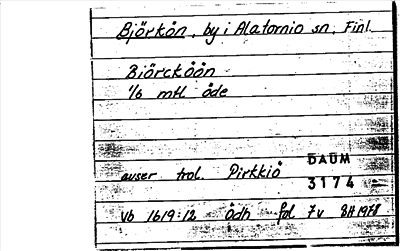 Björkön, by i Alatornio sn, Finl.
Biörcköön
1/6 mtl öde
avser trol. Pirkkiö
DAUM
3174
vb 1619:12 Ödh fol 7v BH 1978